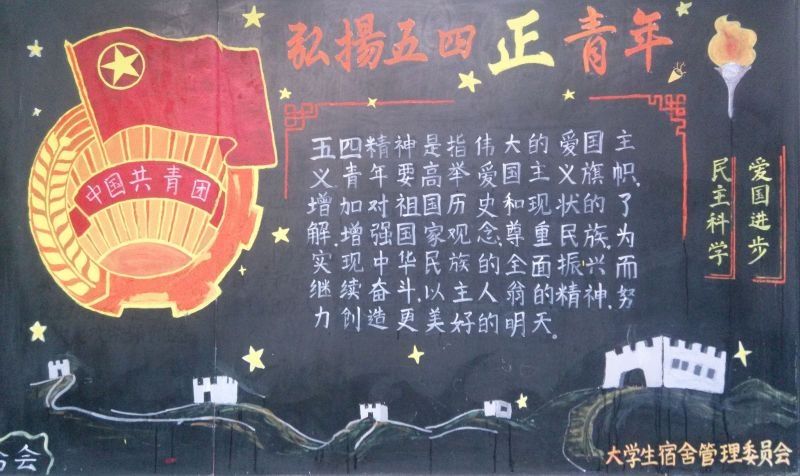 弘揚五四正青年
中国共青团
五四精神是指伟大的爱国主
义青年要高举爱国主义旗帜、
增加对祖国历史和现状的了
解、增强国家观念、尊重民族、为
实现中华民族的全面振兴而
继续奋斗、以主人翁的精神、努
力创造更美好的明天。
爱国进步
民主科学
大学生宿舍管理委员会
会